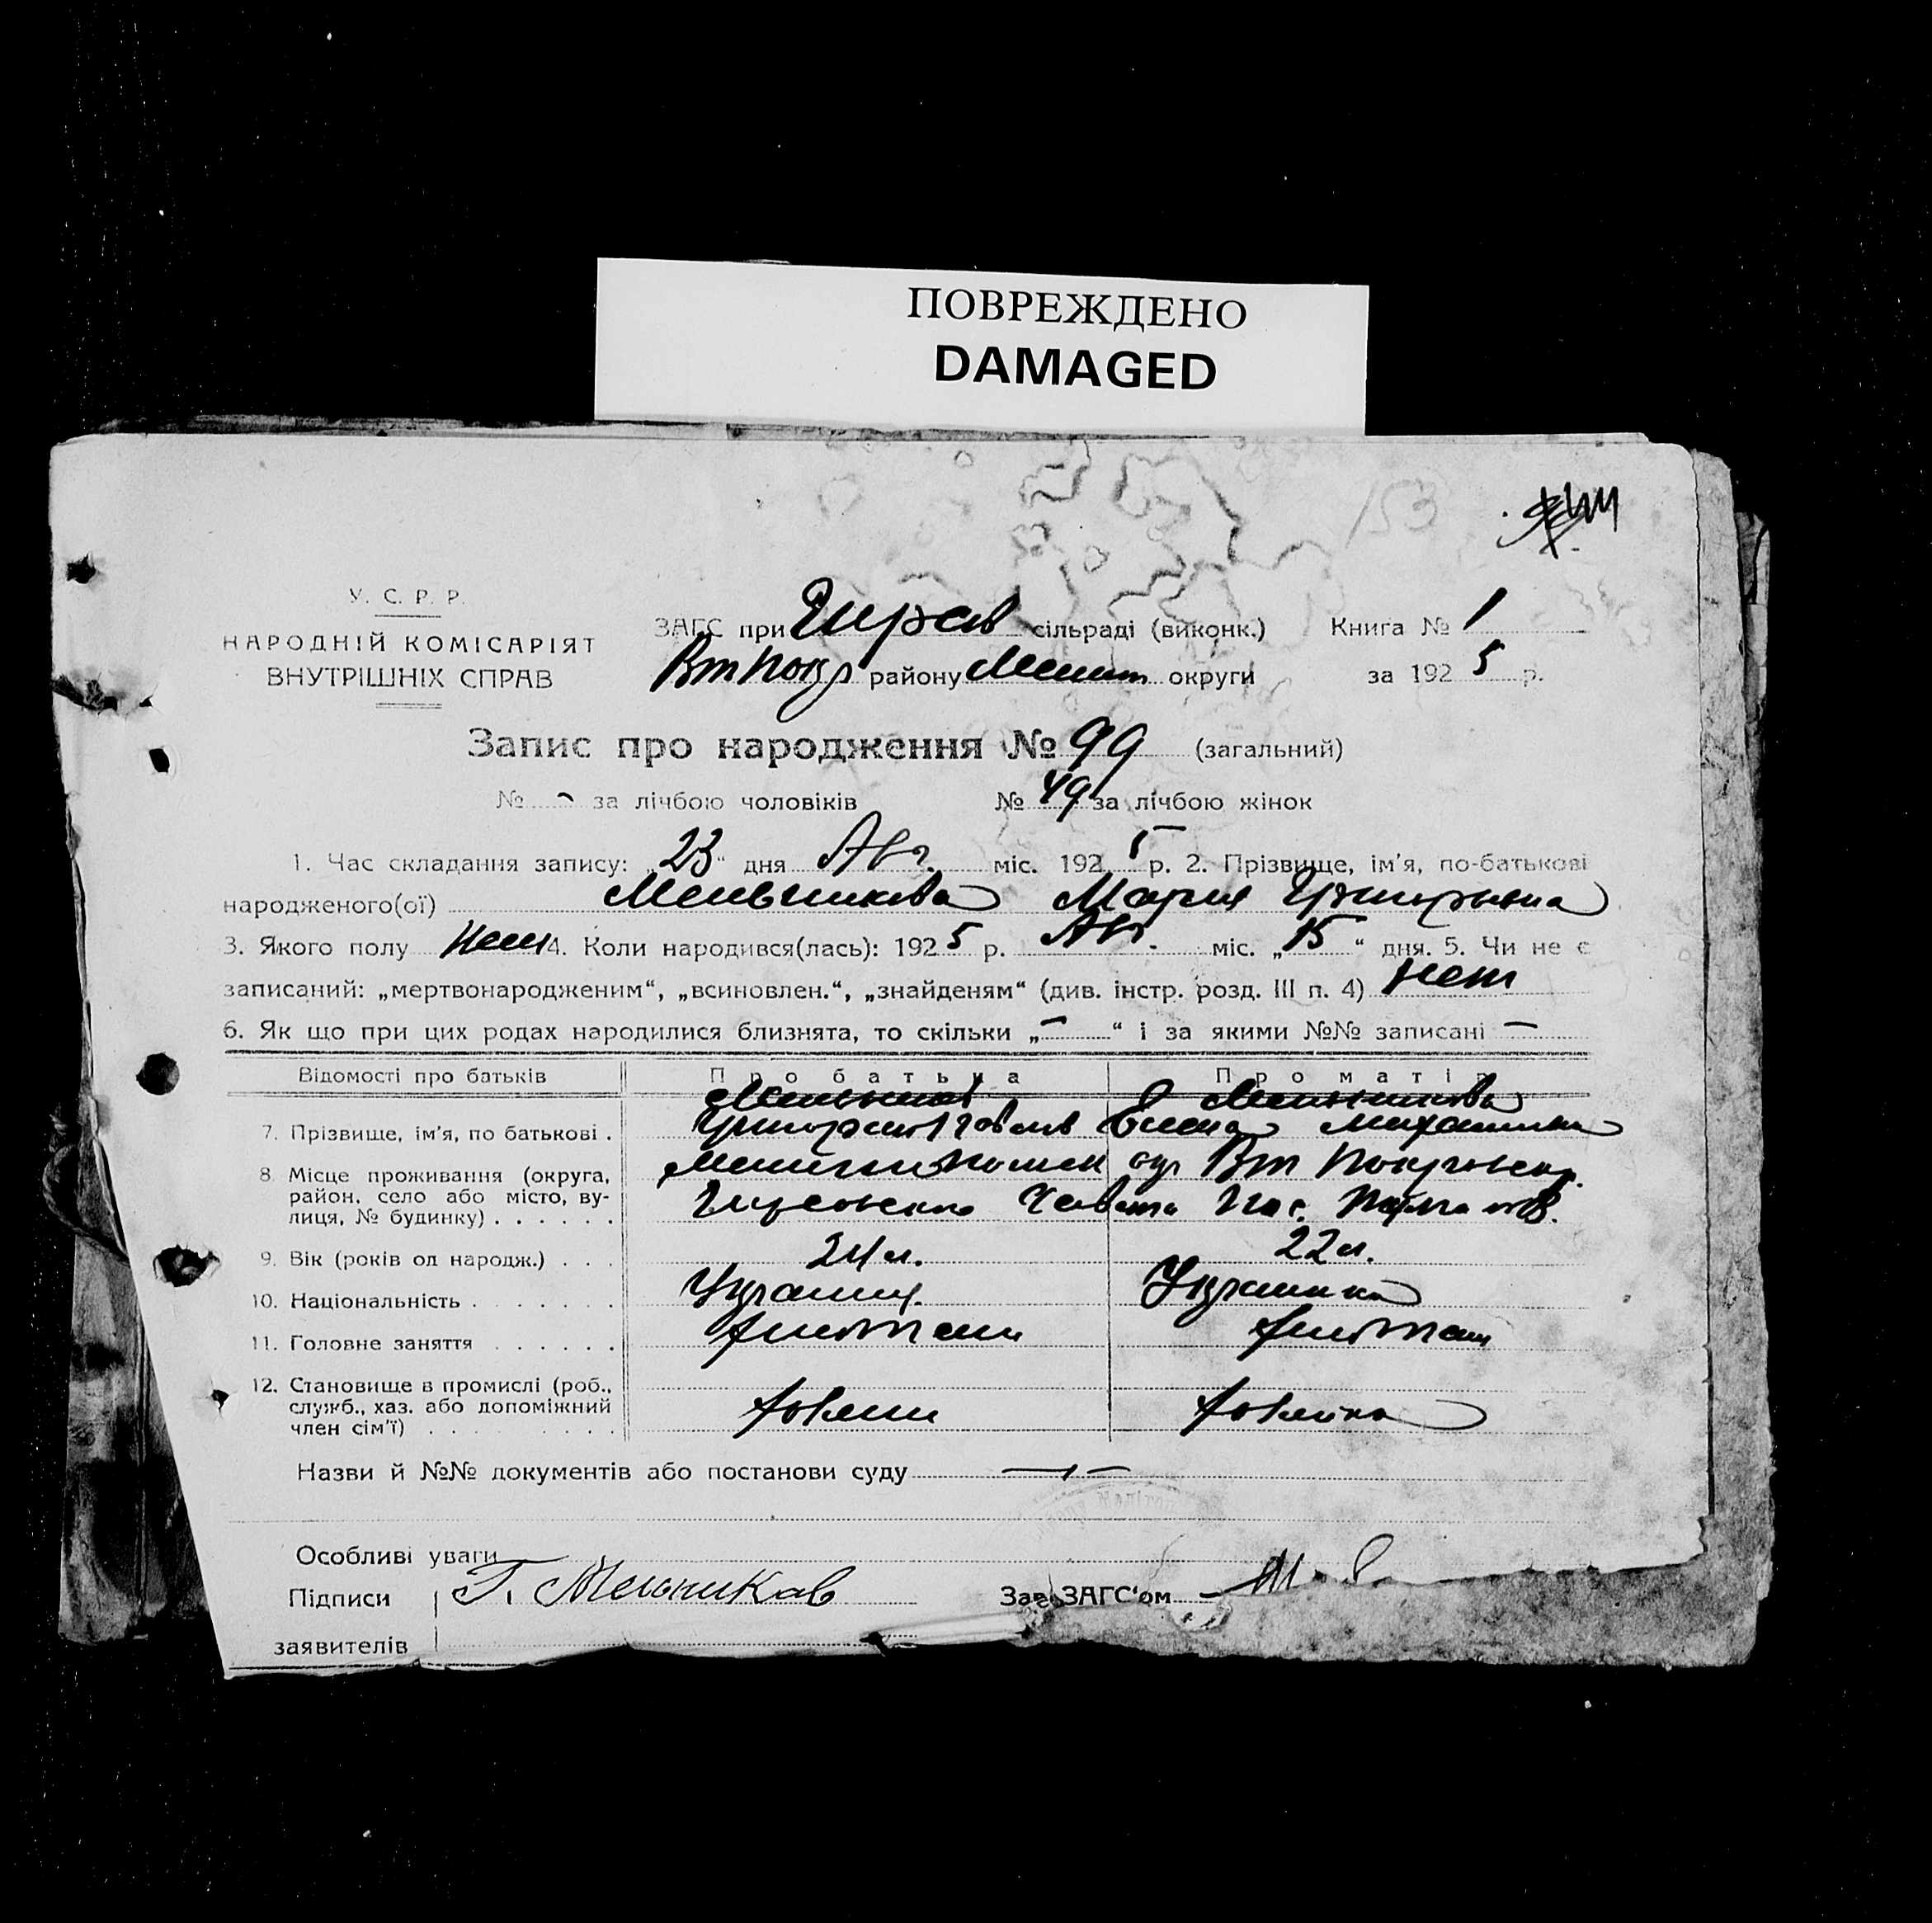 ПОВРЕЖДЕНО
DAMAGED
153
У. С. Р. Р.
НАРОДНІЙ КОМІСАРІЯТ
ВНУТРІШНІХ СПРАВ
ЗАГС при сільраді (виконк.)
Книга № 1
району округи
за 1925 р.
Запис про народження № 99 (загальний)
№ - за лічбою чоловіків № 49 за лічбою жінок
1. Час складання запису: „23“ дня Авг. міс. 1925 р. 2. Прізвище, ім'я, по-батькові
народженого(ої) Мельникова Мария Григорьевна
3. Якого полу жен 4. Коли народився(лась): 1925 р. Авг. міс. „15“ дня. 5. Чи не є
записаний: „мертвонародженим“, „всиновлен.“, „знайденям“ (див. інстр. розд. III п. 4) нет
6. Як що при цих родах народилися близнята, то скільки „-“ і за якими №№ записані -
Відомості про батьків Про батька Про матір
Мельников Мельникова
7. Прізвище, ім'я, по батькові . Григорий Елена
8. Місце проживання (округа,
район, село або місто, ву-
лиця, № будинку) . . . . . .
9. Вік (років од народж.) . . . 24 л. 22 л.
10. Національність . . . . . . . Украинец. Украинка
11. Головне заняття . . . . . .
12. Становище в промислі (роб.,
служб., хаз. або допоміжний
член сім'ї) . . . . . . . . .
Назви й №№ документів або постанови суду
Особливі уваги
Підписи Г. Мельников Зав. ЗАГС'ом
заявителів